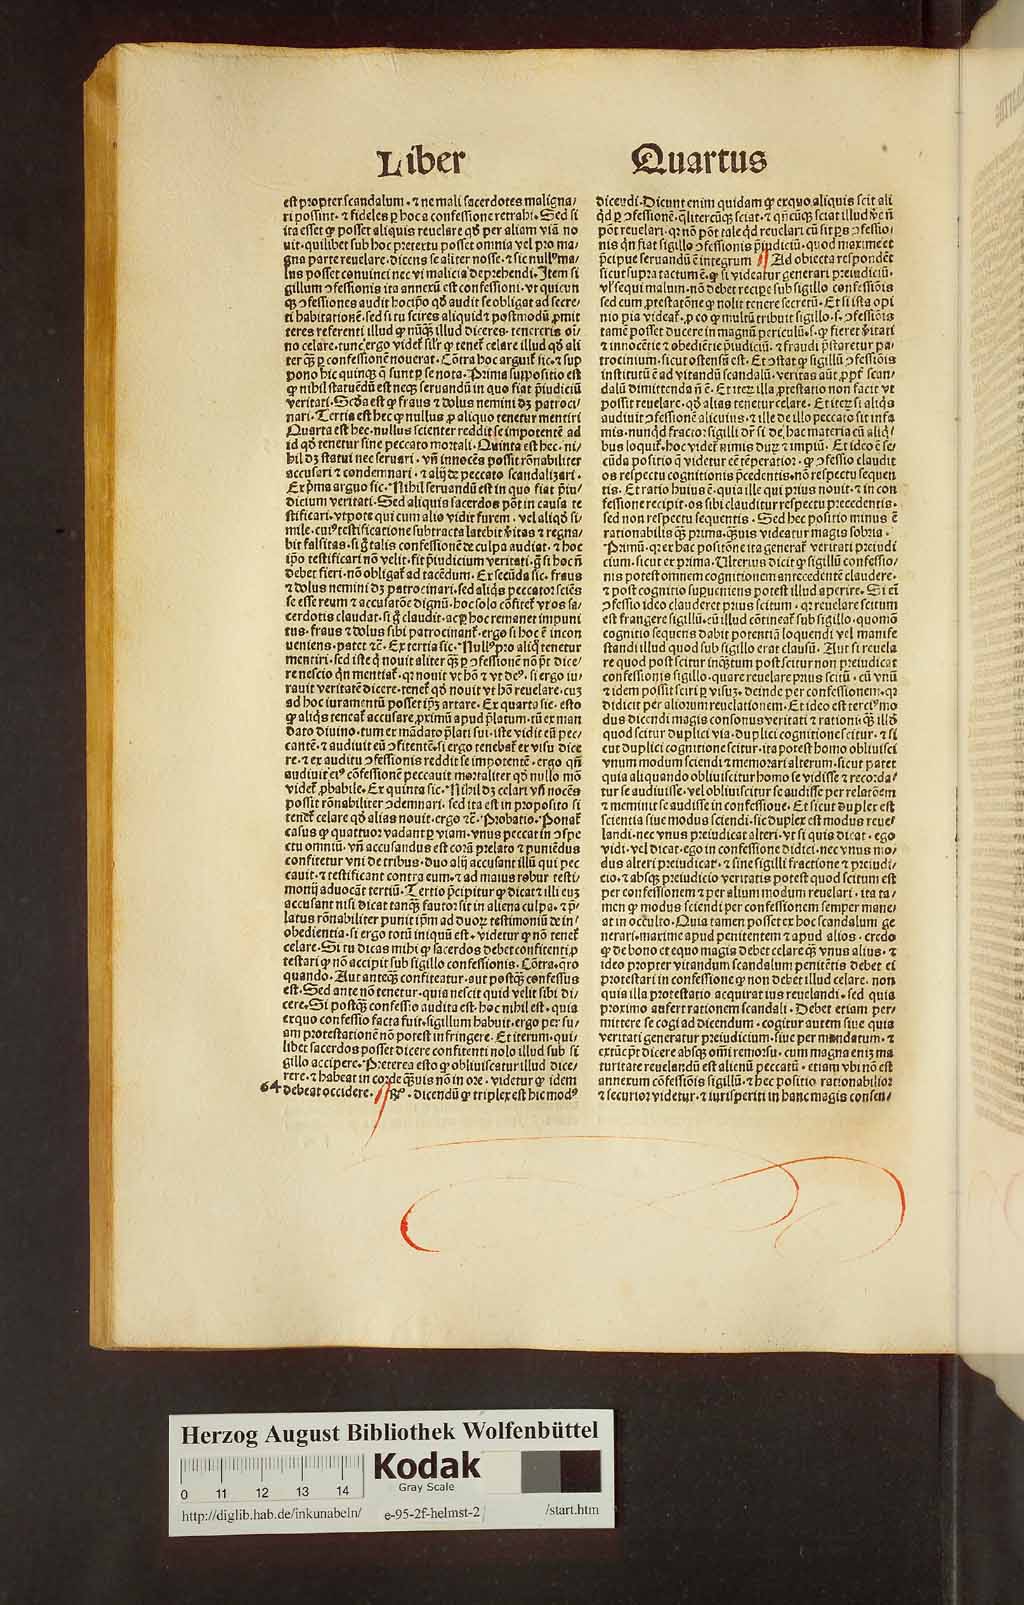 Liber Quartus
est propter scandalum. ⁊ ne mali sacerdotes maligna/
ri possint. ⁊ fideles ꝑ hoc a confessione retrahi. Sed si
ita esset ꝙ posset aliquis reuelare qd̕ per aliam viã no
uit. quilibet sub hoc pretextu posset omnia vel pro ma/
gna parte reuelare. dicens se aliter nosse. ⁊ sic nullꝰ ma/
lus posset conuinci nec vi malicia deprehendi. Item si
gillum ↄfessionis ita annexũ est confessioni. vt quicun
qꝫ ↄfessiones audit hocip̃o qd̕ audit se obligat ad secre/
ti habitationẽ. sed si tu scires aliquid ⁊ postmodũ ꝓmit
teres referenti illud ꝙ nũqꝫ illud diceres. tenereris oĩ/
no celare. tunc ergo videt̃ sil̕r ꝙ tenet̃ celare illud qd̕ ali
ter qꝫ ꝑ confessionẽ nouerat. Cõtra hoc arguit̃ sic. ⁊ sup
pono hic quinqꝫ q̃ sunt ꝑ se nota. Prima suppositio est
ꝙ nihil statuẽdũ est neqꝫ seruandũ in quo fiat p̃iudiciũ
veritati. Scd̕a est ꝙ fraus ⁊ dolus nemini dꝫ patroci/
nari. Tertia est hec ꝙ nullus ꝓ aliquo tenetur mentiri
Quarta est hec. nullus scienter reddit se impotentẽ ad
id qd̕ tenetur sine peccato mortali. Quinta est hec. ni/
hil dꝫ statui nec seruari. vñ innocẽs possit rõnabiliter
accusari ⁊ condemnari. ⁊ alij de peccato scandalizari.
Ex p̃ma arguo sic. Nihil seruandũ est in quo fiat p̃iu/
dicium veritati. Sed aliquis sacerdos põt in causa te
stificari. vtpote qui cum alio vidit furem. vel aliqd̕ si/
mile. cuiꝰ testificatione subtracta latebit v̕itas ⁊ regna/
bit falsitas. si g̕ talis confessionẽ de culpa audiat. ⁊ hoc
ip̃o testificari nõ velit. fit p̃iudicium veritati. g̕ si hoc ñ
debet fieri. nõ obligat̃ ad tacẽdum. Ex secũda sic. fraus
⁊ dolus nemini dꝫ patrocinari. sed aliq̃s peccator sciẽs
se esse reum ⁊ accusatõe dignũ. hoc solo cõfitet̃ vt os sa/
cerdotis claudat. si g̕ claudit. ac ꝑ hoc remanet impuni
tus. fraus ⁊ dolus sibi patrocinant̃. ergo si hoc ẽ incon
ueniens. patet ⁊c̃. Ex tertia sic. Nullꝰ pro aliq̃ tenetur
mentiri. sed iste q̃ nouit aliter qꝫ ꝑ ↄfessionẽ nõ põt dice/
re nescio qñ mentiat̃. qꝛ nouit vt hõ ⁊ vt deꝰ. si ergo iu/
rauit veritatẽ dicere. tenet̃ qd̕ nouit vt hõ reuelare. cuꝫ
ad hoc iuramentũ posset ip̃ꝫ artare. Ex quarto sic. esto
ꝙ aliq̃s teneat̃ accusare ꝓximũ apud p̃latum. tũ ex man
dato diuino. tum ex mãdato p̃lati sui. iste vidit eũ pec/
cantẽ. ⁊ audiuit eũ ↄfitentẽ. si ergo tenebat̃ ex visu dice
re. ⁊ ex auditu ↄfessionis reddit se impotentẽ. ergo qñ
audiuit eiꝰ cõfessionẽ peccauit mortaliter qd̕ nullo mõ
videt̃ ꝓbabile. Ex quinta sic. Nihil dꝫ celari vñ nocẽs
possit rõnabiliter ↄdemnari. sed ita est in proposito si
tenet̃ celare qd̕ alias nouit. ergo ⁊c̃. Probatio. Ponat̃
casus ꝙ quattuor vadant ꝑ viam. vnus peccat in ↄspe
ctu omniũ. vñ accusandus est corã prelato ⁊ puniẽdus
confitetur vni de tribus. duo alij accusant illũ qui pec
cauit. ⁊ testificant contra eum. ⁊ ad maius robur testi/
monij aduocãt tertiũ. Tertio p̃cipitur ꝙ dicat ⁊ illi euꝫ
accusant nisi dicat tanqꝫ fautor sit in aliena culpa. ⁊ p̃/
latus rõnabiliter punit ip̃m ad duoꝝ testimoniũ de in/
obedientia. si ergo totũ iniquũ est. videtur ꝙ nõ tenet̃
celare. Si tu dicas mihi ꝙ sacerdos debet confitenti ꝓ
testari ꝙ nõ accipit sub sigillo confessionis. Cõtra. q̃ro
quando. Aut anteqꝫ confiteatur. aut postqꝫ confessus
est. Sed ante nõ tenetur. quia nescit quid velit sibi di/
cere. Si postqꝫ confessio audita est. hoc nihil est. quia
exquo confessio facta fuit. sigillum habuit. ergo per su/
am protestationẽ nõ potest infringere. Et iterum. qui/
libet sacerdos posset dicere confitenti nolo illud sub si
gillo accipere. Preterea esto ꝙ obliuiscatur illud dice/
rere. ⁊ habeat in corde qꝫuis nõ in ore. videtur ꝙ idem
64 debeat occidere. ¶ Rꝰ. dicendũ ꝙ triplex est hic modꝰ
dicendi. Dicunt enim quidam ꝙ exquo aliquis scit ali
qd̕ ꝑ ↄfessionẽ. q̃litercũqꝫ sciat. ⁊ qñcũqꝫ sciat illud v̕e ñ
põt reuelari. qꝛ nõ põt tale qd̕ reuelari cũ sit ꝑs ↄfessio/
nis qñ fiat sigillo ↄfessionis p̃iudiciũ. quod maxime et
p̃cipue seruandũ ẽ integrum ¶ Ad obiecta respondẽt
sicut supra tactum ẽ. ꝙ si videatur generari preiudiciũ.
vl̕ sequi malum. nõ debet recipe sub sigillo confessiõis
sed cum ꝓtestatõne ꝙ nolit tenere secretũ. Et si ista opi
nio pia videat̃. ꝓ eo ꝙ multũ tribuit sigillo .s. ↄfessiõis
tamẽ posset ducere in magnũ periculũ .s. ꝙ fieret v̕itati
⁊ innocẽtie ⁊ obediẽtie p̃iudiciũ. ⁊ fraudi p̃staretur pa/
trocinium. sicut ostensũ est. Et ↄstat ꝙ sigillũ ↄfessiõis
institutũ ẽ ad vitandũ scandalũ. veritas aũt ꝓpt̕ scan/
dalũ dimittenda ñ ẽ. Et iteꝝ illa ꝓtestatio non facit vt
possit reuelare. qd̕ alias tenetur celare. Et iteꝝ si aliq̃s
audiuit ↄfessionẽ alicuius. ⁊ ille de illo peccato sit infa
mis. nunqd̕ fractor sigilli dr̃ si de hac materia cũ aliq̃/
bus loquit̃. hoc videt̃ nimis duꝝ ⁊ impiũ. Et ideo ẽ se/
cũda positio q̃ videtur eẽ tẽperatior. ꝙ ↄfessio claudit
os respectu cognitionis p̃cedentis. nõ respectu sequen
tis. Et ratio huius ẽ. quia ille qui prius nouit. ⁊ in con
fessione recipit. os sibi clauditur respectu precedentis.
sed non respectu sequentis. Sed hec positio minus ẽ
rationabilis qꝫ prima. qꝫuis videatur magis sobria.
Primũ. qꝛ ex hac positõne ita generat̃ veritati preiudi
cium. sicut ex prima. Ulterius dicit ꝙ sigillũ confessio/
nis potest omnem cognitionem antecedentẽ claudere.
⁊ post cognitio superueniens potest illud aperire. Si eñ
ↄfessio ideo clauderet prius scitum. qꝛ reuelare scitum
est frangere sigillũ. cũ illud cõtineat̃ sub sigillo. quomõ
cognitio sequens dabit potentiã loquendi vel manife
standi illud quod sub sigillo erat clausũ. Aut si reuela
re quod post scitur inqꝫtum post scitur non preiudicat
confessionis sigillo. quare reuelare prius scitũ. cũ vnũ
⁊ idem possit sciri ꝑ visuꝫ. deinde per confessionem. qꝛ
didicit per aliorum reuelationem. Et ideo est tertiꝰ mo
dus dicendi magis consonus veritati ⁊ rationi. qꝫ illd̕
quod scitur duplici via. duplici cognitione scitur. ⁊ si
cut duplici cognitione scitur. ita potest homo obliuisci
vnum modum sciendi ⁊ memorari alterum. sicut patet
quia aliquando obliuiscitur homo se vidisse ⁊ recorda/
tur se audiuisse. vel obliuiscitur se audisse per relatõem
⁊ meminit se audisse in confessione. Et sicut duplex est
scientia siue modus sciendi. sic duplex est modus reue/
landi. nec vnus preiudicat alteri. vt si quis dicat. ego
vidi. vel dicat. ego in confessione didici. nec vnus mo/
dus alteri preiudicat. ⁊ sine sigilli fractione ⁊ preiudi/
cio. ⁊ absqꝫ preiudicio veritatis potest quod scitum est
per confessionem ⁊ per alium modum reuelari. ita ta/
men ꝙ modus sciendi per confessionem semper mane/
at in occulto. Quia tamen posset ex hoc scandalum ge
nerari. maxime apud penitentem ⁊ apud alios. credo
ꝙ de bono et equo magis debet celare qꝫ vnus alius. ⁊
ideo propter vitandum scandalum penitẽtis debet ei
protestari in confessione ꝙ non debet illud celare. non
quia illa protestatio acquirat ius reuelandi. sed quia
proximo aufert rationem scandali. Debet etiam per/
mittere se cogi ad dicendum. cogitur autem siue quia
veritati generatur preiudicium. siue per mandatum. ⁊
extũc põt dicere absqꝫ om̃i remorsu. cum magna eniꝫ ma
turitate reuelandũ est alienũ peccatũ. etiam vbi nõ est
annexum cõfessiõis sigillũ. ⁊ hec positio rationabilior
⁊ securior videtur. ⁊ iurisperiti in hanc magis consen/
Herzog August Bibliothek Wolfenbüttel
0 11 12 13 14
Kodak
Gray Scale
http://diglib.hab.de/inkunabeln/ e-95-2f-helmst-2 /start.htm